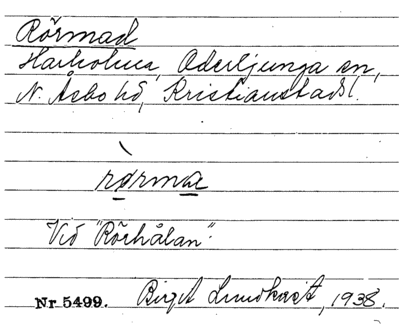 Rörmad
Harholma, Oderljunga sn,
N. Åsbo hd, Kristianstads l.
rørma
Vid "Rörhålan".
Nr 5499. Birgit Lundkvist, 1938.